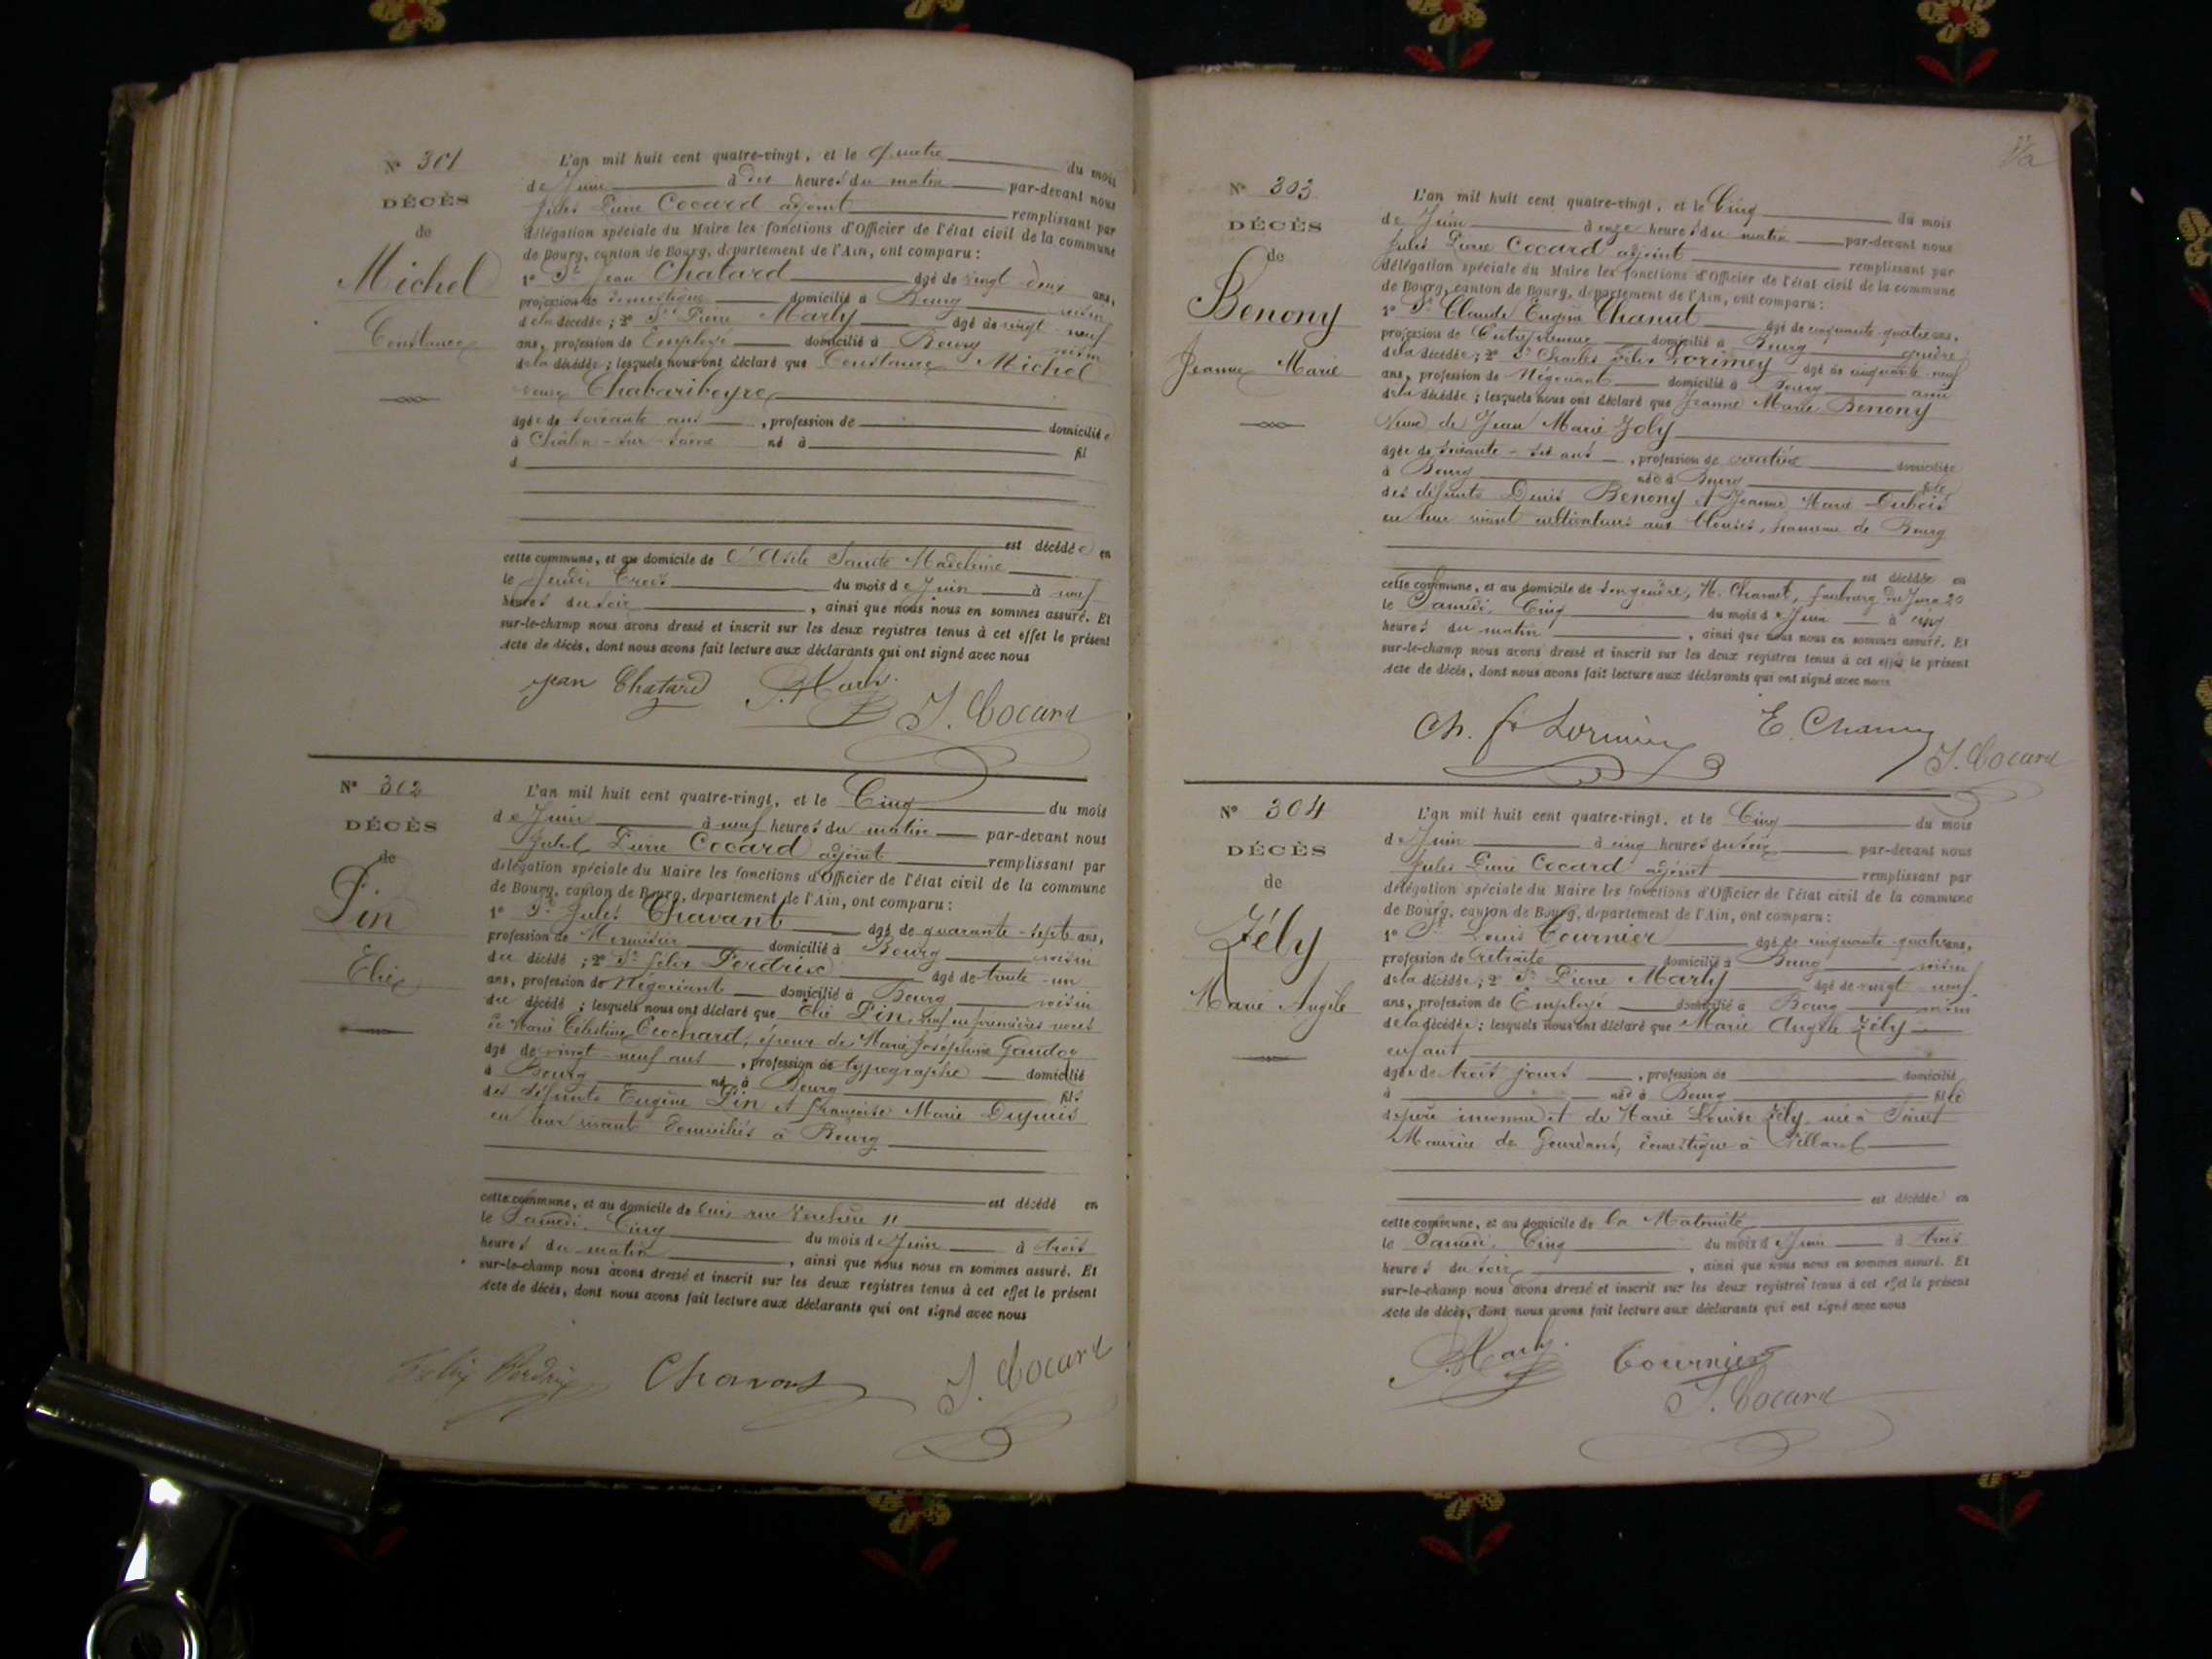 N° 301
DÉCÈS
de
Michel
Constance
L'an mil huit cent quatre-vingt, et le quatre du mois
de Juin à dix heures du matin par-devant nous
Jules Pierre Cocard adjoint remplissant par
délégation spéciale du Maire les fonctions d'Officier de l'état civil de la commune
de Bourg, canton de Bourg, département de l'Ain, ont comparu :
1° Sr Jean Chatard âgé de vingt-deux ans,
profession de domestique domicilié à Bourg voisin
de la décédée ; 2° Sr Pierre Marly âgé de vingt-neuf
ans, profession de Employé domicilié à Bourg voisin
de la décédée ; lesquels nous ont déclaré que Constance Michel
veuve Chabaribeyre
âgée de soixante ans, profession de domiciliée
à Châlon-sur-Saône né à fil
d
est décédée en
cette commune, et au domicile de l'Asile Sainte Madeleine
le Jeudi, Trois du mois de Juin à neuf
heures du soir, ainsi que nous nous en sommes assuré. Et
sur-le-champ nous avons dressé et inscrit sur les deux registres tenus à cet effet le présent
Acte de décès, dont nous avons fait lecture aux déclarants qui ont signé avec nous
Jean Chatard P. Marly J. Cocard
N° 302
DÉCÈS
de
Pin
Elie
L'an mil huit cent quatre-vingt, et le Cinq du mois
de Juin à neuf heures du matin par-devant nous
Jules Pierre Cocard adjoint remplissant par
délégation spéciale du Maire les fonctions d'Officier de l'état civil de la commune
de Bourg, canton de Bourg, département de l'Ain, ont comparu :
1° Sr Jules Chavant âgé de quarante-sept ans,
profession de Menuisier domicilié à Bourg voisin
du décédé ; 2° Sr Félix Perdrix âgé de trente-un
ans, profession de Négociant domicilié à Bourg voisin
du décédé ; lesquels nous ont déclaré que Elie Pin, veuf en premières noces
de Marie Célestine Ecochard, époux de Marie Joséphine Gaudoz
âgé de vingt-neuf ans, profession de typographe domicilié
à Bourg né à Bourg fils
des défunts Eugène Pin et Françoise Marie Dupuis
en leur vivant domiciliés à Bourg
est décédé en
cette commune, et au domicile de lui, rue Verchère 11
le Samedi, Cinq du mois de Juin à trois
heures du matin, ainsi que nous nous en sommes assuré. Et
sur-le-champ nous avons dressé et inscrit sur les deux registres tenus à cet effet le présent
Acte de décès, dont nous avons fait lecture aux déclarants qui ont signé avec nous
Félix Perdrix Chavant J. Cocard
N° 303
DÉCÈS
de
Benony
Jeanne Marie
L'an mil huit cent quatre-vingt, et le Cinq du mois
de Juin à onze heures du matin par-devant nous
Jules Pierre Cocard adjoint remplissant par
délégation spéciale du Maire les fonctions d'Officier de l'état civil de la commune
de Bourg, canton de Bourg, département de l'Ain, ont comparu :
1° Sr Claude Eugène Chanut âgé de cinquante-quatre ans,
profession de Entrepreneur domicilié à Bourg gendre
de la décédée ; 2° Sr Charles Félix Lorimey âgé de cinquante-neuf
ans, profession de Négociant domicilié à Bourg ami
de la décédée ; lesquels nous ont déclaré que Jeanne Marie Benony
Veuve de Jean Marie Joly
âgée de soixante-dix ans, profession de rentière domiciliée
à Bourg née à Bourg fille
des défunts Denis Benony et Jeanne Marie Dubois
en leur vivant cultivateurs aux bleuses, hameau de Bourg
est décédée en
cette commune, et au domicile de son gendre, M. Chanut, faubourg du Jura 20
le Samedi, Cinq du mois de Juin à cinq
heures du matin, ainsi que nous nous en sommes assuré. Et
sur-le-champ nous avons dressé et inscrit sur les deux registres tenus à cet effet le présent
Acte de décès, dont nous avons fait lecture aux déclarants qui ont signé avec nous
Ch. F. Lorimey E. Chanut
J. Cocard
N° 304
DÉCÈS
de
Zély
Marie Angèle
L'an mil huit cent quatre-vingt, et le Cinq du mois
de Juin à cinq heures du soir par-devant nous
Jules Pierre Cocard adjoint remplissant par
délégation spéciale du Maire les fonctions d'Officier de l'état civil de la commune
de Bourg, canton de Bourg, département de l'Ain, ont comparu :
1° Sr Louis Cournier âgé de cinquante-quatre ans,
profession de Retraité domicilié à Bourg voisin
de la décédée ; 2° Sr Pierre Marly âgé de vingt-neuf
ans, profession de Employé domicilié à Bourg voisin
de la décédée ; lesquels nous ont déclaré que Marie Angèle Zély
enfant
âgée de trois jours, profession de domicilié
à née à Bourg fille
de père inconnu et de Marie Louise Zély née à Saint
Maurice de Gourdans, domestique à Villars
est décédée en
cette commune, et au domicile de la Maternité
le Samedi, Cinq du mois de Juin à trois
heures du soir, ainsi que nous nous en sommes assuré. Et
sur-le-champ nous avons dressé et inscrit sur les deux registres tenus à cet effet le présent
Acte de décès, dont nous avons fait lecture aux déclarants qui ont signé avec nous
P. Marly Cournier
J. Cocard